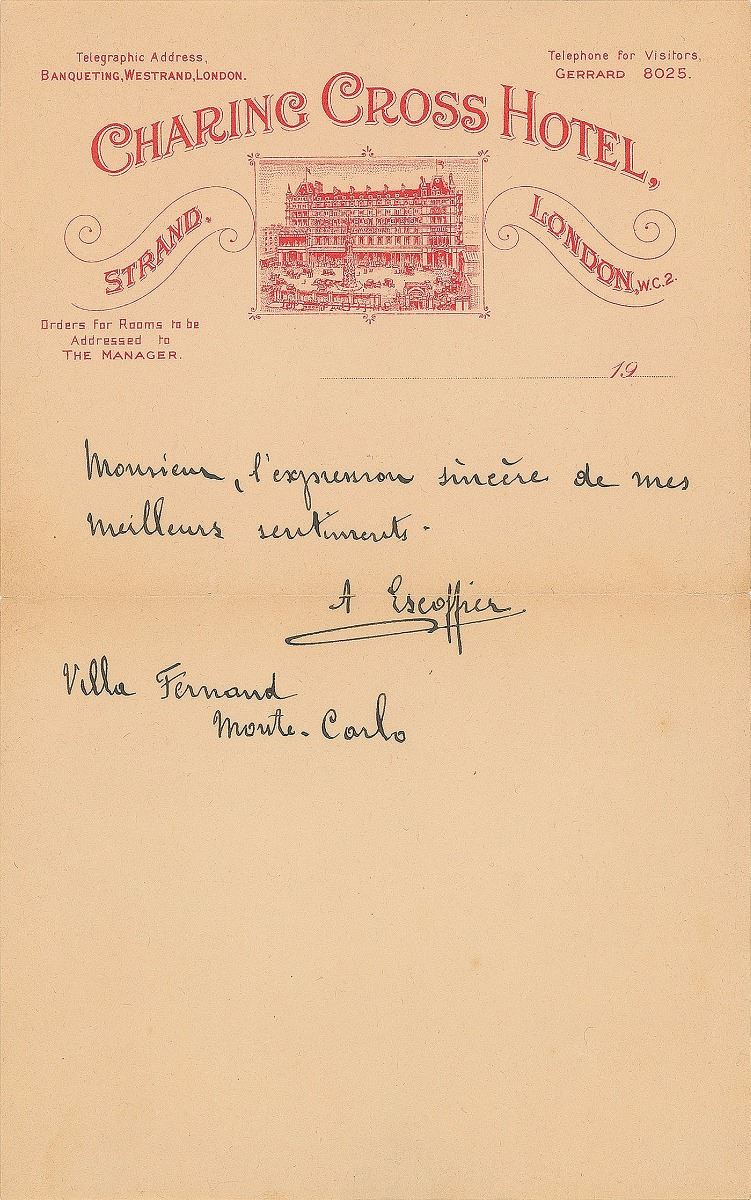 Telegraphic Address,
BANQUETING, WESTRAND, LONDON.
Telephone for Visitors,
GERRARD 8025.
CHARING CROSS HOTEL,
STRAND.
LONDON, W.C.2.
Orders for Rooms to be
Addressed to
THE MANAGER.
19
Monsieur, l'expression sincère de mes
meilleurs sentiments.
A Escoffier
Villa Fernand
Monte-Carlo